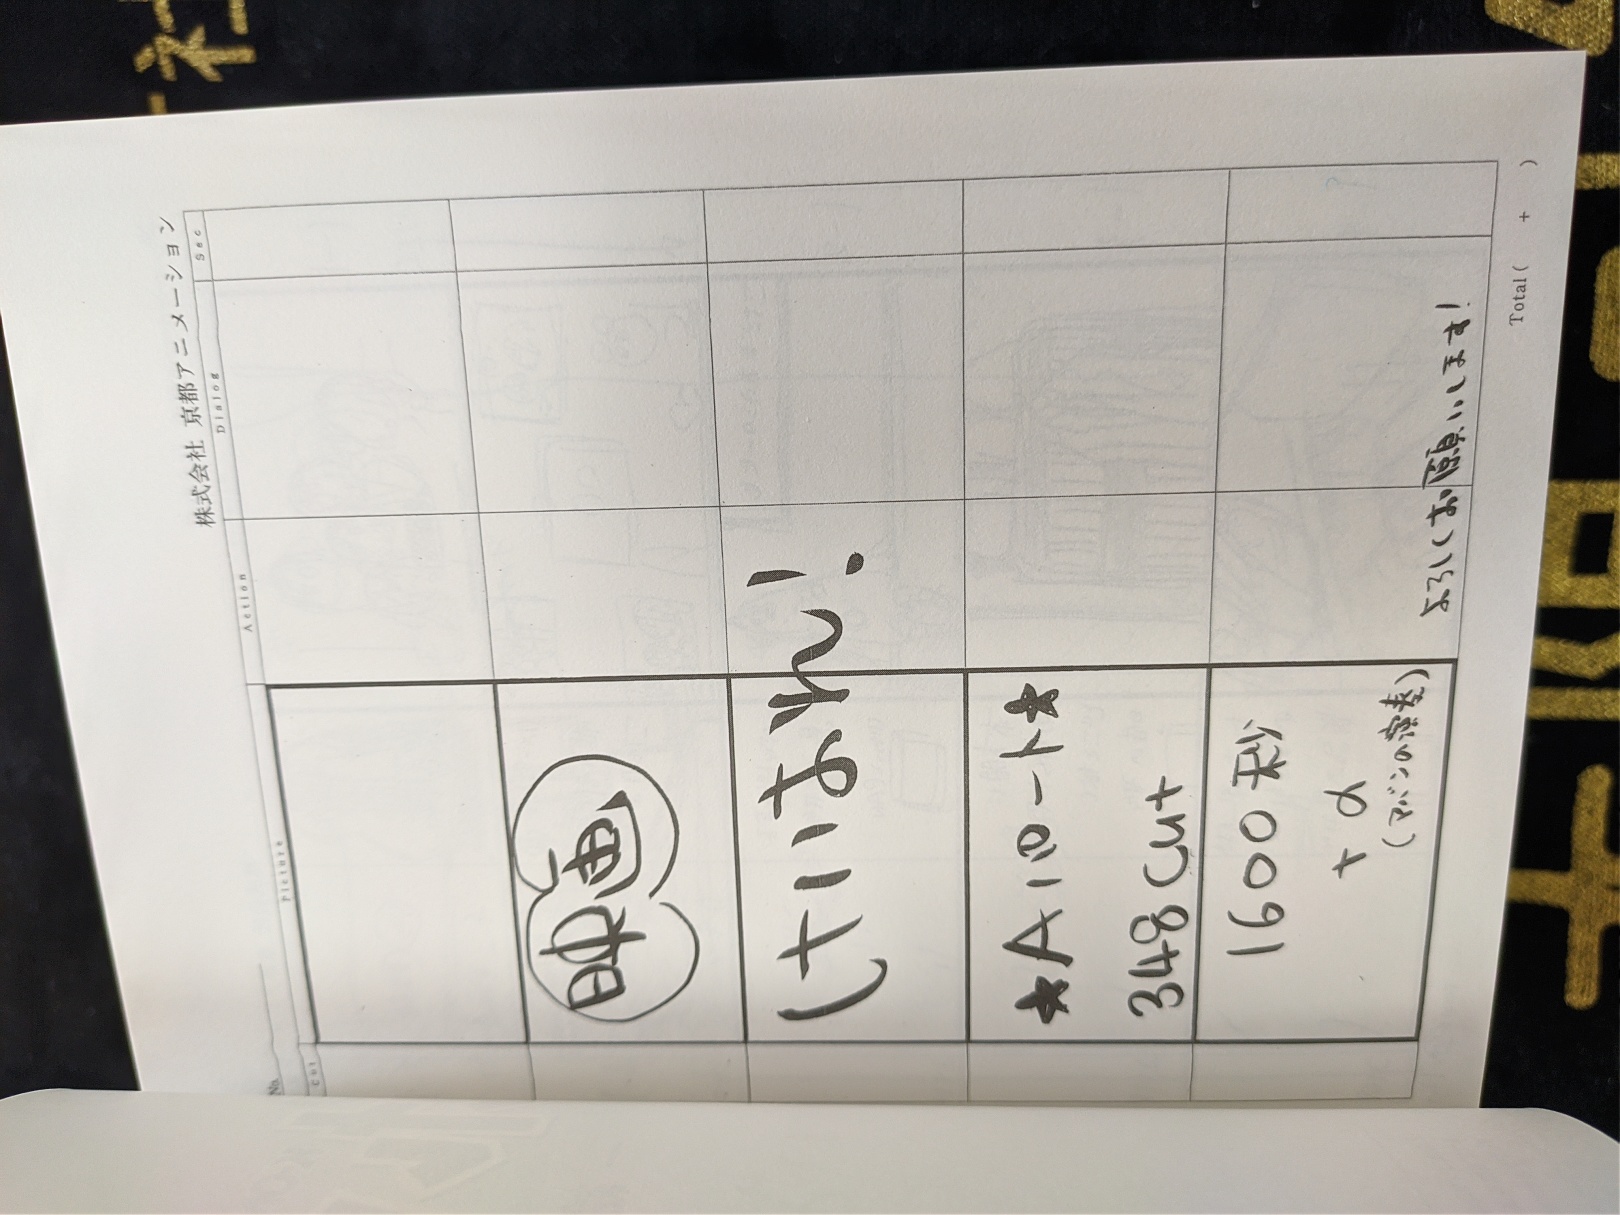 株式会社 京都アニメーション
No.
Cut Picture Action Dialog Sec
映画
けいおん!
★Aパート★
348 cut
1600秒
+α
(アバンの演奏)
よろしくお願いします!
Total( + )
社